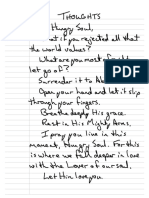 THOUGHTS
Hungry Soul,
What if you rejected all that
the world values?
What are you most afraid to
let go of?
Surrender it to
Open your hand and let it slip
through your fingers.
Breathe deeply His grace.
Rest in His Mighty Arms.
I pray you live in this
moment, Hungry Soul. For this
is where we fall deeper in love
with the Lover of our soul.
Let Him love you.